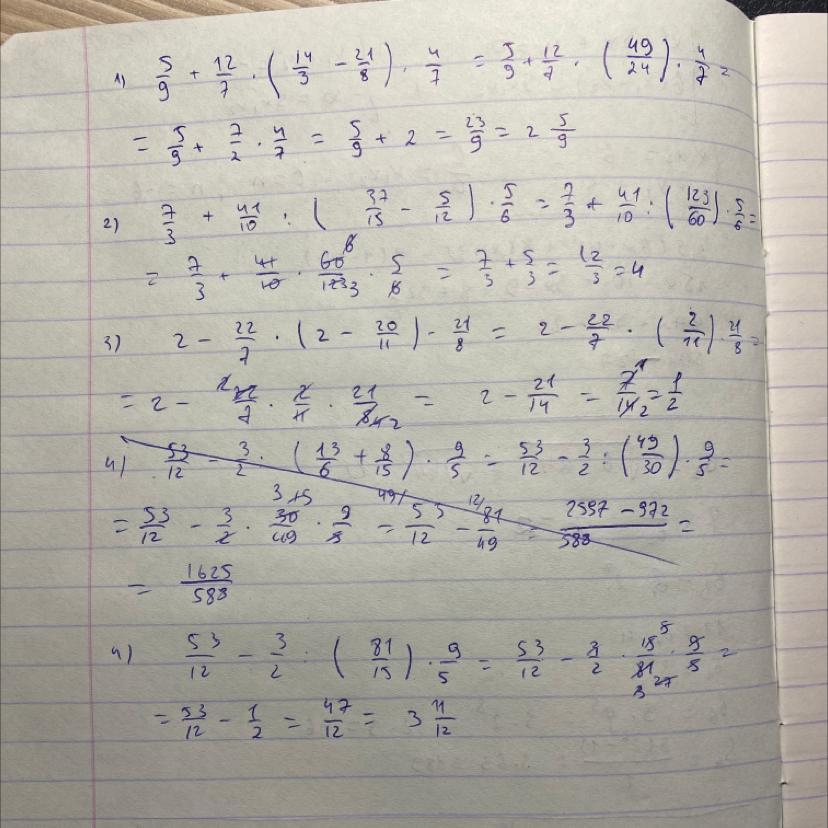 1) 5/9 + 12/7 · (14/3 − 21/8) · 4/7 = 5/9 + 12/7 · (49/24) · 4/7 =
= 5/9 + 7/2 · 4/7 = 5/9 + 2 = 23/9 = 2 5/9
2) 7/3 + 41/10 : (37/15 − 5/12) · 5/6 = 7/3 + 41/10 : (123/60) · 5/6 =
= 7/3 + 41/10 · 60 6/123 3 · 5/6 = 7/3 + 5/3 = 12/3 = 4
3) 2 − 22/7 · (2 − 20/11) − 21/8 = 2 − 22/7 · (2/11) · 21/8 =
= 2 − 2 22/7 · 2/11 · 21/8 4 2 = 2 − 21/14 = 7 1/14 2 = 1/2
4) 53/12 − 3/2 : (13/6 + 8/15) · 9/5 = 53/12 − 3/2 : (49/30) · 9/5 =
= 53/12 − 3/2 · 30/49 · 9/5 = 49/ 53/12 − 12/ 81/49 = 2597 − 972/588 =
= 1625/588
4) 53/12 − 3/2 : (81/15) · 9/5 = 53/12 − 3/2 · 15 5/81 27 3 · 9/5 =
= 53/12 − 1/2 = 47/12 = 3 11/12